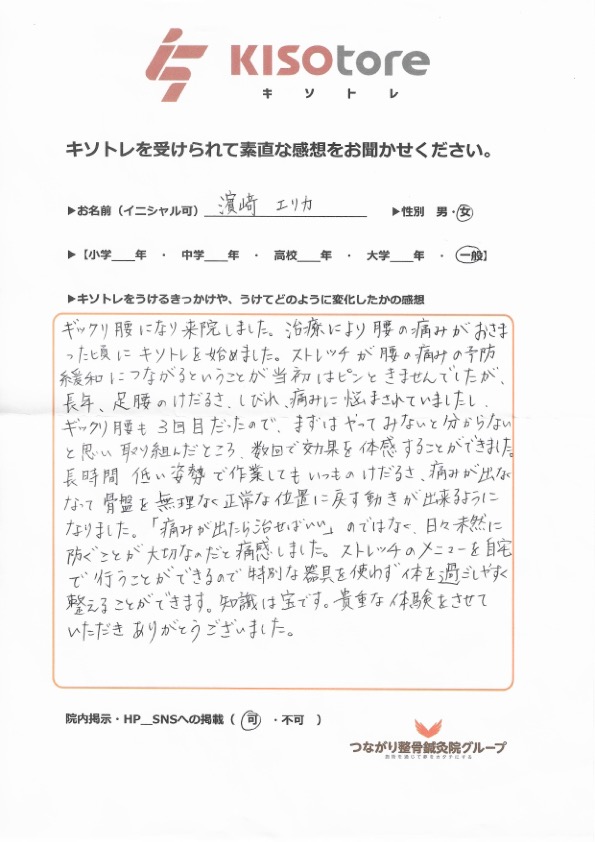 KISOtore
キソトレ
キソトレを受けられて素直な感想をお聞かせください。
▶お名前（イニシャル可） 濵崎 エリカ ▶性別 男・女
▶【小学___年 ・ 中学___年 ・ 高校___年 ・ 大学___年 ・ 一般】
▶キソトレをうけるきっかけや、うけてどのように変化したかの感想
ギックリ腰になり来院しました。治療により腰の痛みがおさま
った頃にキソトレを始めました。ストレッチが腰の痛みの予防
緩和につながるということが当初はピンときませんでしたが、
長年、足腰のけだるさ、しびれ、痛みに悩まされていましたし、
ギックリ腰も3回目だったので、まずはやってみないと分からない
と思い取り組んだところ、数回で効果を体感することができました。
長時間 低い姿勢で作業してもいつものけだるさ、痛みが出なく
なって骨盤を無理なく正常な位置に戻す動きが出来るように
なりました。「痛みが出たら治せばいい」のではなく、日々未然に
防ぐことが大切なのだと痛感しました。ストレッチのメニューを自宅
で行うことができるので特別な器具を使わず体を過ごしやすく
整えることができます。知識は宝です。貴重な体験をさせて
いただきありがとうございました。
院内掲示・HP__SNSへの掲載（ 可 ・不可 ）
つながり整骨鍼灸院グループ